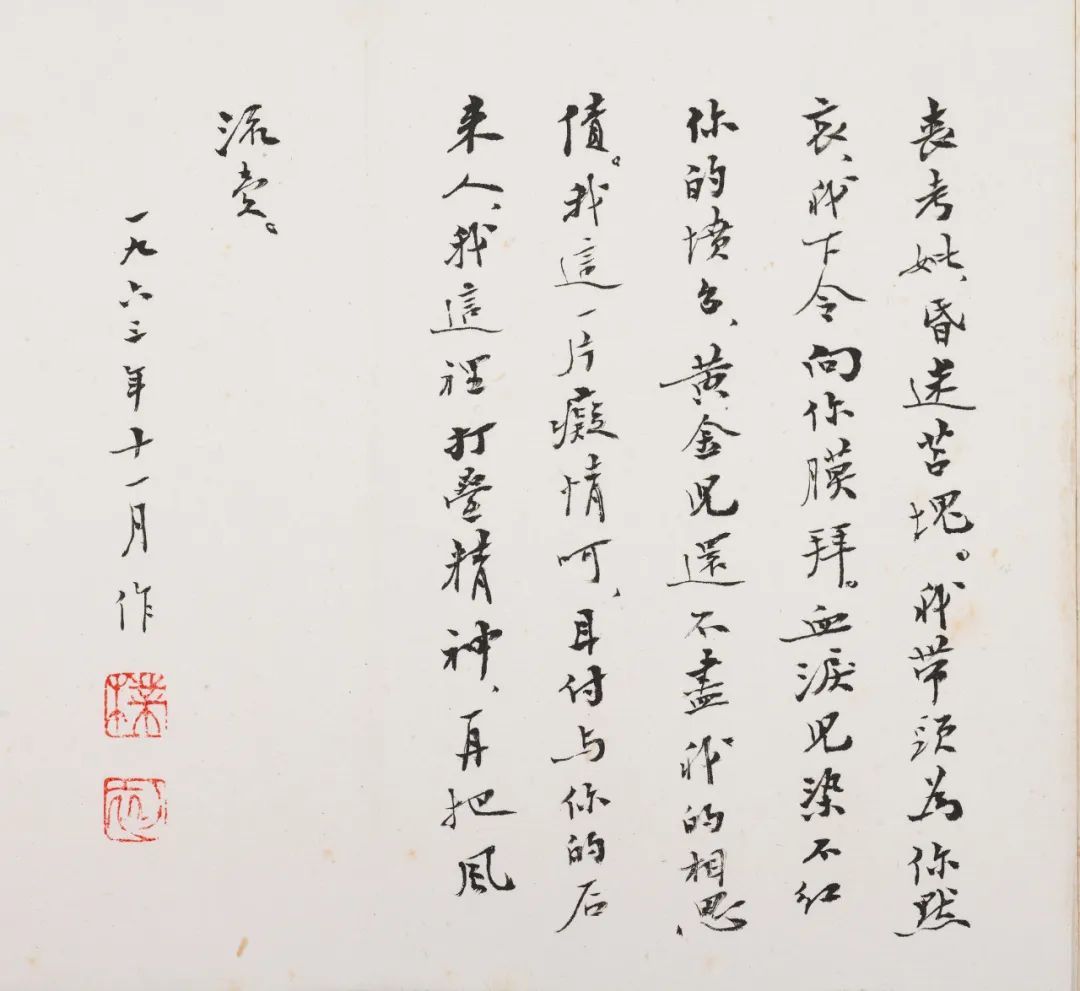 喪考妣、昏迷苫塊。我带頭為你默
哀、我下令向你膜拜。血淚兒染不紅
你的墳台、黄金兒還不盡我的相思
債。我這一片癡情呵、且付与你的后
来人、我這裡打疊精神、再把風
流賣。
一九六三年十一月作
樸
初